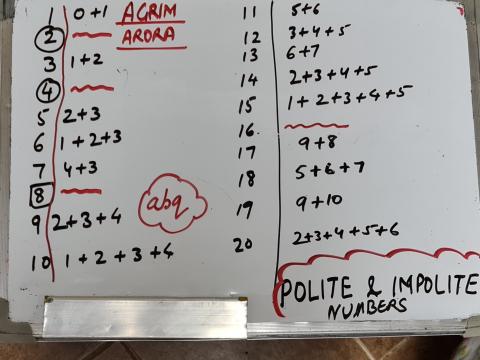 1 0+1 AGRIM
2 ARORA
3 1+2
4
5 2+3
6 1+2+3
7 4+3
8
9 2+3+4
10 1+2+3+4
abq
11 5+6
12 3+4+5
13 6+7
14 2+3+4+5
15 1+2+3+4+5
16
17 9+8
18 5+6+7
19 9+10
20 2+3+4+5+6
POLITE & IMPOLITE
NUMBERS